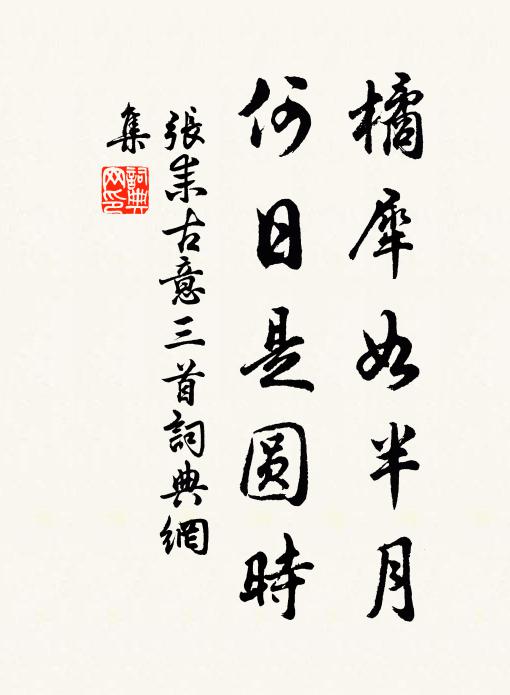 橘犀如半月
何日是圆時
張耒古意三首詞典網
集
詞典網印